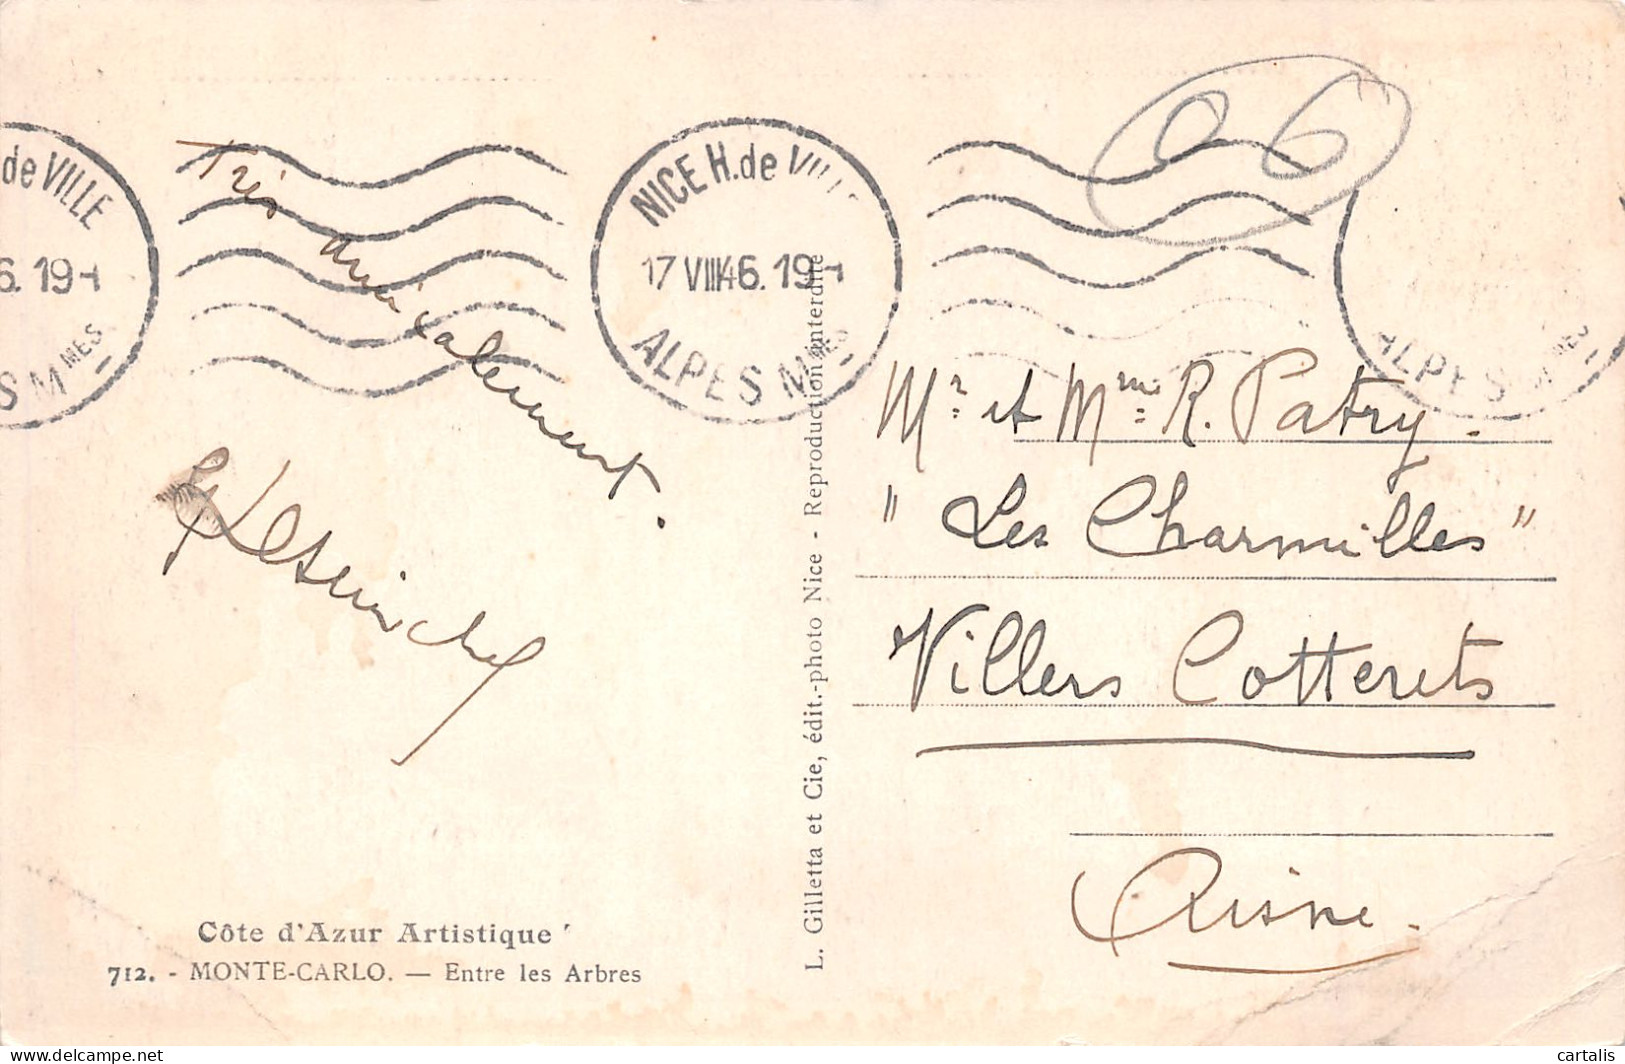 de VILLE
6. 19-
S MMES
NICE H. de VILLE
17 VIII 46. 19-
ALPES MMES
ALPES
06
Très
Amicalement.
Mr et Mme R. Patry.
"Les Charmilles"
Villers Cotterets
Aisne.
L. Gilletta et Cie, édit.-photo Nice - Reproduction interdite
Côte d'Azur Artistique
712. - MONTE-CARLO. — Entre les Arbres
www.delcampe.net
cartalis